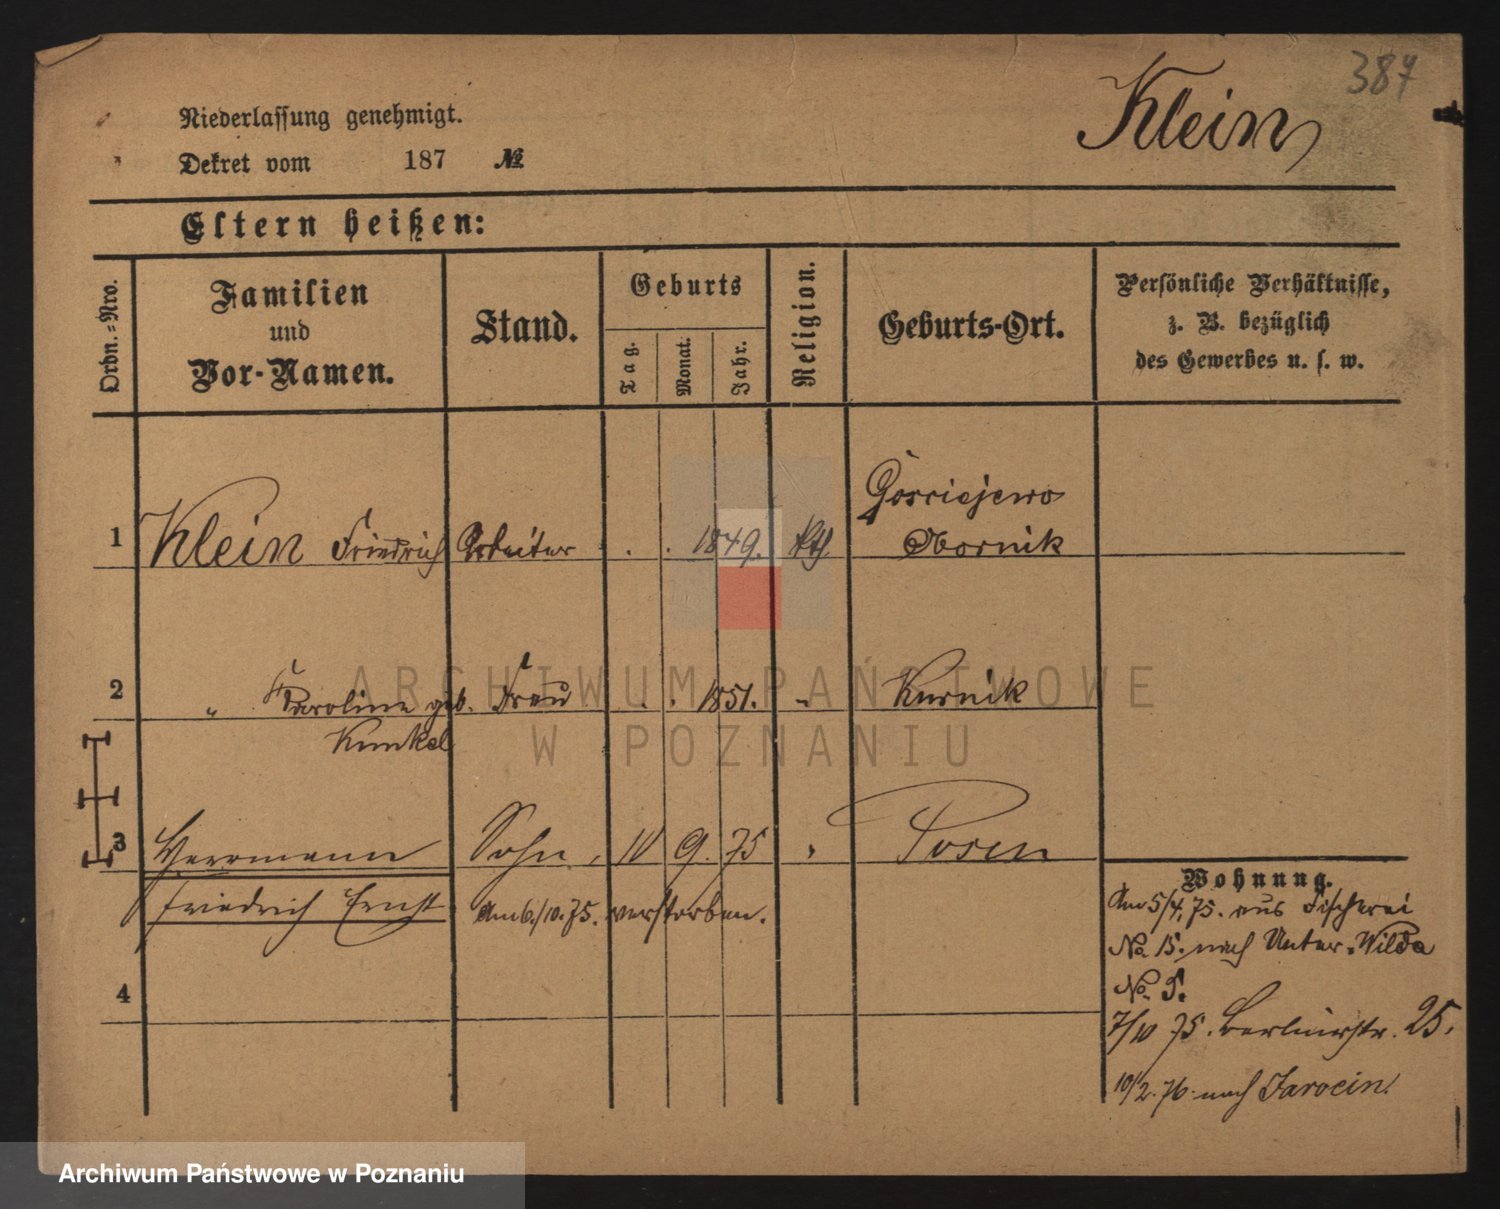 387
Klein
Niederlassung genehmigt.
Dekret vom 187 №
Eltern heißen:
Ordn.-Nro.
Familien und Vor-Namen.
Stand.
Geburts
Tag. Monat. Jahr.
Religion.
Geburts-Ort.
Persönliche Verhältnisse,
z. B. bezüglich
des Gewerbes u. s. w.
Gosciejewo
1 Klein Friedrich Arbeiter . . 1849. kth Obornik
2 " Karoline geb. Frau . . 1851. " Kurnik
Kunkel
3 Herrmann Sohn, 10 9. 75 " Posen
Friedrich Ernst Am 6./10. 75. verstorben.
4
Wohnung.
Am 5/4. 75. aus Fischerei
No 15. nach Unter-Wilda
No 5.
7/10 75. Berlinerstr. 25.
10/2. 76. nach Jarocin.
ARCHIWUM PAŃSTWOWE
W POZNANIU
Archiwum Państwowe w Poznaniu